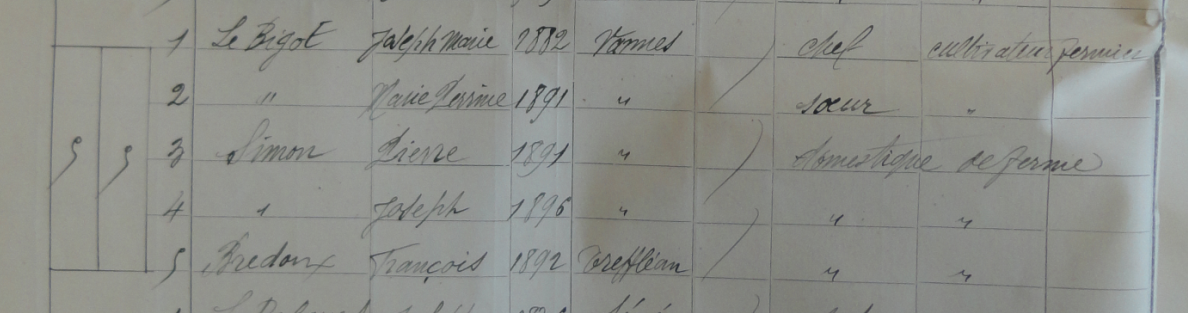 1 Le Bigot Joseph Marie 1882 Vannes chef cultivateur fermier
2 " Marie Perrine 1891 " sœur "
5 5 3 Simon Pierre 1891 " domestique de ferme
4 " Joseph 1896 " " "
5 Bredoux François 1892 Treffléan " "